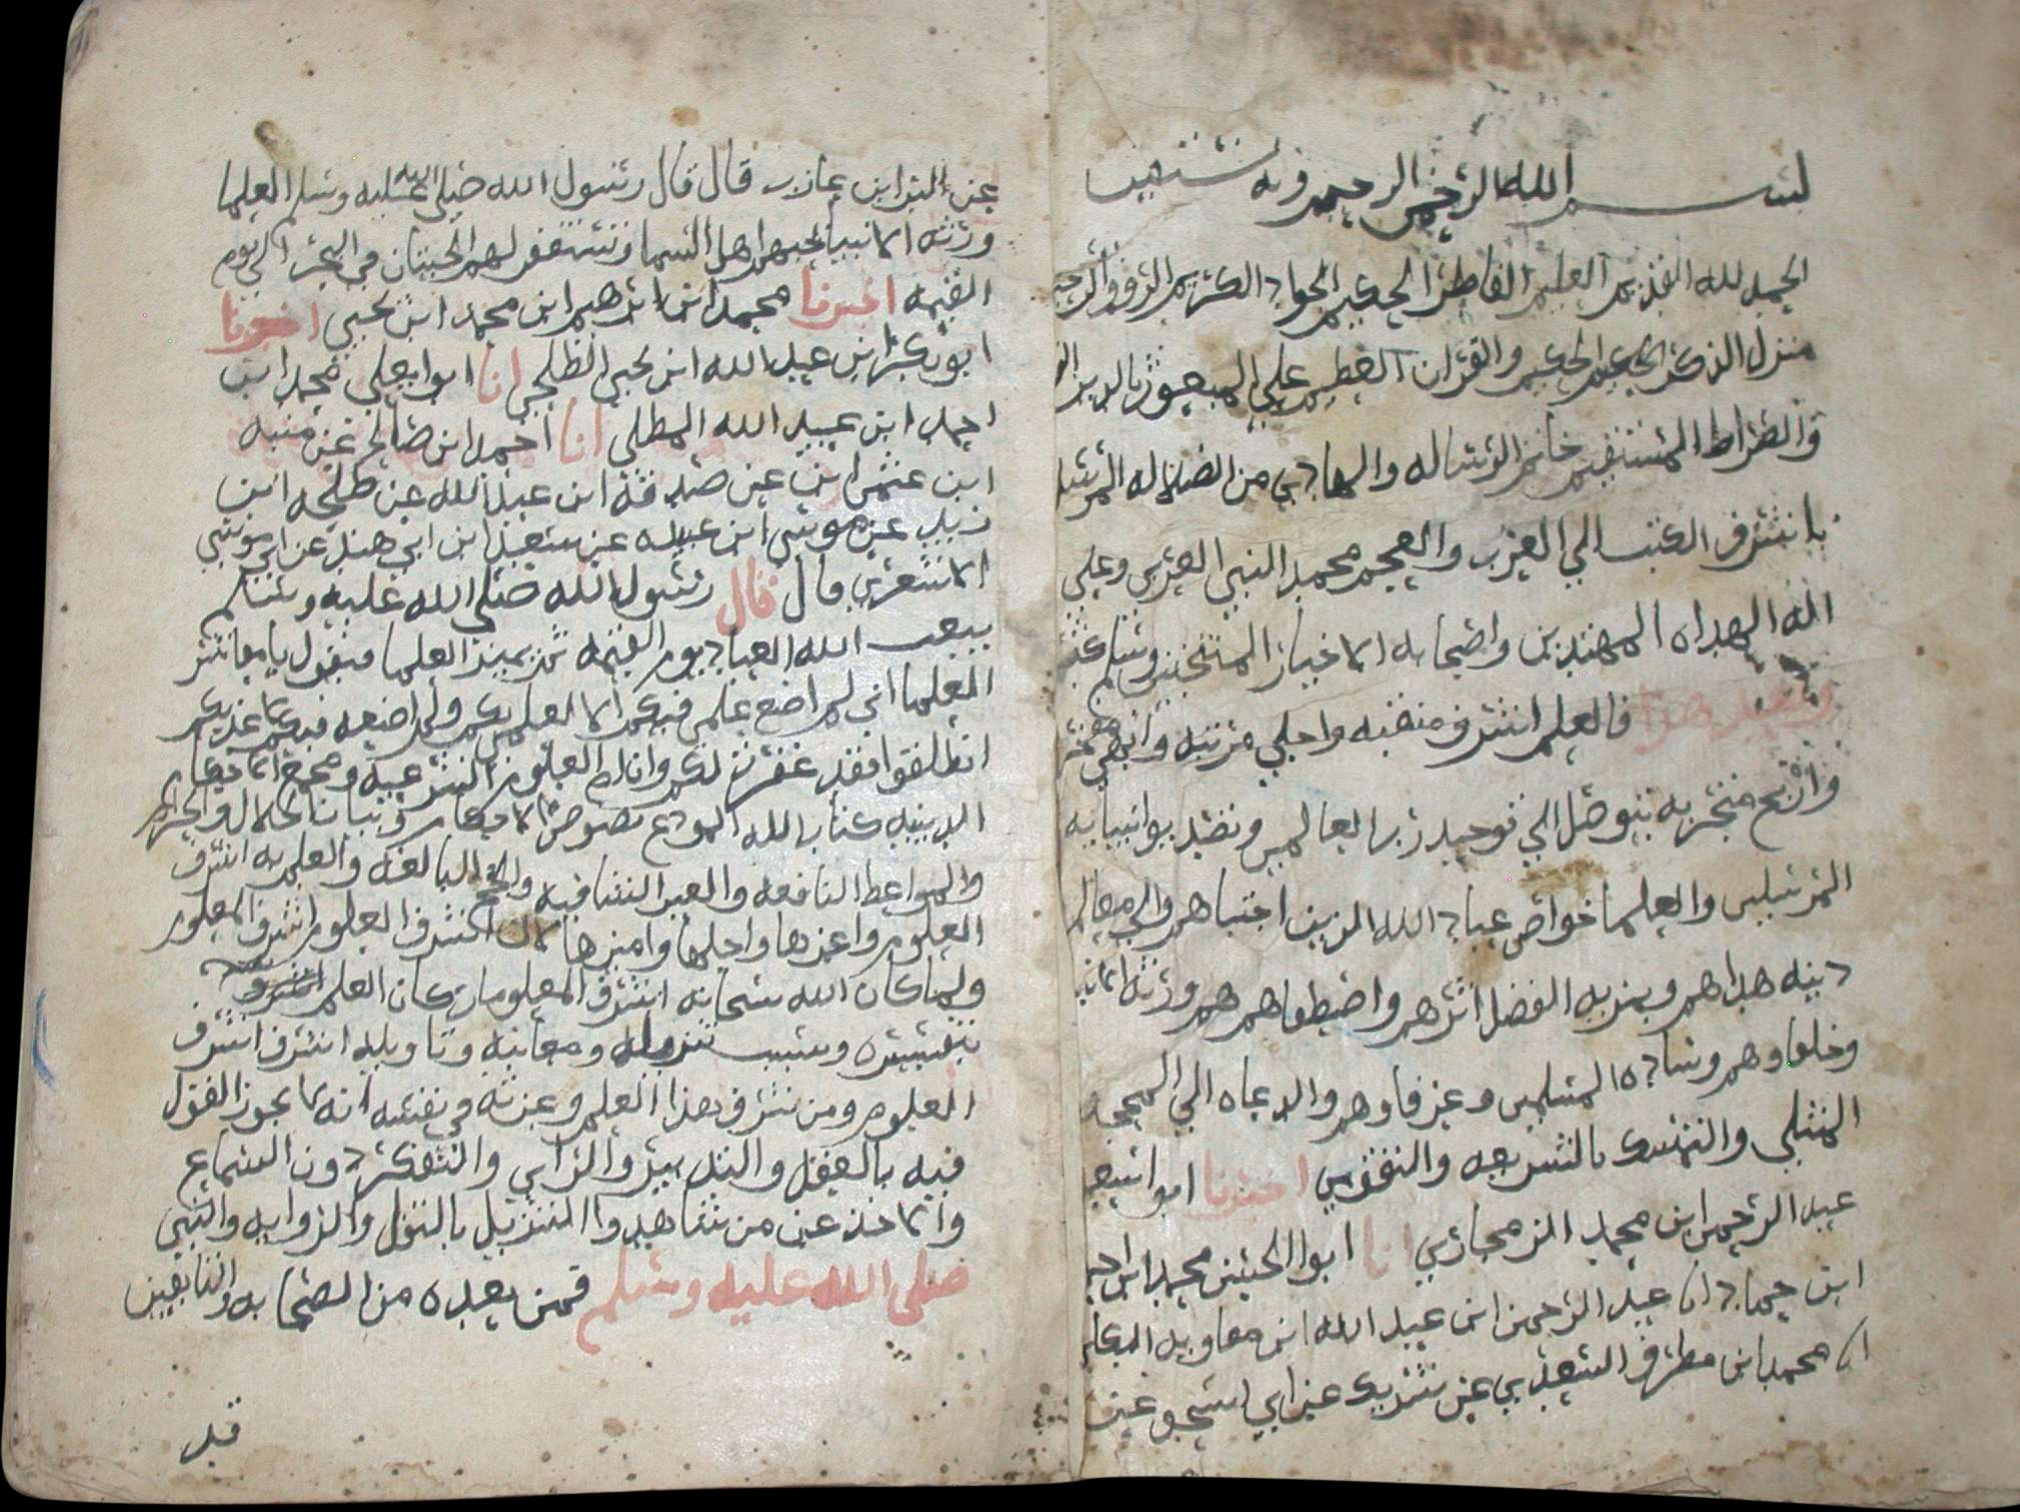 بسم الله الرحمن الرحيم وبه نستعين
الحمد لله القديم العليم الفاطر الحكيم الجواد الكريم الرؤوف الرحيم
منزل الذكر الحكيم والقران العظيم علي المبعوث بالدين
والصراط المستقيم خاتم الرساله والهادي من الضلاله المرسل
باشرف الكتب الي العرب والعجم محمد النبي العربي وعلي
اله الهداه المهتدين واصحابه الاخيار المنتجبين وسلم
وبعد هذا فالعلم اشرف منقبه واجلي مرتبه وابهي
واربح متجر به يتوصل الي توحيد رب العالمين وتصديق انبيايه
المرسلين والعلما خواص عباد الله الذين اجتباهم والي معالم
دينه هداهم وبمزيه الفضل اثرهم واصطفاهم هم ورثه الانبيا
وخلفاوهم وساده المسلمين وعرفاوهم والدعاه الي المحجه
المثلي والتمسك بالشريعه والتقوي اخبرنا ابوا سعيد
عبد الرحمن ابن محمد الزمجاري انا ابوا الحسين محمد ابن احمد
ابن حماد انا عبد الرحمن ابن عبد الله ابن معاويه
انا محمد ابن مطرف السعدي عن شريك عن ابي اسحق عن
عن البرا ابن عازب قال قال رسول الله صلي الله عليه وسلم العلما
ورثه الانبيا يحبهم اهل السما وتستغفر لهم الحيتان في البحر الي يوم
القيمه اخبرنا محمد ابن ابرهيم ابن محمد ابن يحيي اخبرنا
ابو بكر ابن عبد الله ابن يحيي الطلحي انا ابوا يعلي محمد ابن
احمد ابن عبيد الله المطلي انا احمد ابن صالح عن منبه
ابن عثمن عن صدقه ابن عبد الله عن طلحه ابن
زيد عن موسي ابن عبيده عن سعيد ابن ابي هند عن ابي موسي
الاشعري قال قال رسول الله صلي الله عليه وسلم
يبعث الله العباد يوم القيمه ثم يميز العلما فيقول يا معاشر
العلما اني لم اضع علمي فيكم الا لعلمي بكم ولم اضعه فيكم لاعذبكم
انطلقوا فقد غفرت لكم وان ام العلوم الشرعيه ومجمع الاحكام
الدينيه كتاب الله المودع نصوص الاحكام وبيان الحلال والحرام
والمواعظ النافعه والعبر الشافيه والحجج البالغه والعلم به اشرف
العلوم واعزها واجلها وامزها لان شرف العلوم بشرف المعلوم
ولما كان الله سبحانه اشرف المعلومات كان العلم
بتفسيره وسبب تنزيله ومعانيه وتاويله اشرف اشرف
العلوم ومن شرف هذا العلم وعزته في نفسه انه لا يجوز القول
فيه بالعقل والتدبير والراي والتفكر دون السماع
والاخذ عن من شاهدوا التنزيل بالنقل والروايه والنبي
صلي الله عليه وسلم فمن بعده من الصحابه والتابعين
قد